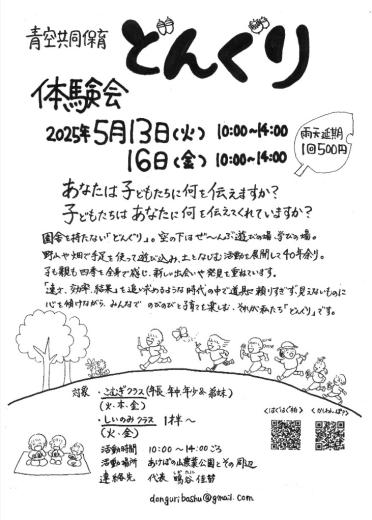 青空共同保育
どんぐり
体験会
2025年5月13日(火) 10:00~14:00
16日(金) 10:00~14:00
雨天延期
1回500円
あなたは子どもたちに何を伝えますか?
子どもたちはあなたに何を伝えてくれていますか?
園舎を持たない「どんぐり」。空の下はぜ〜んぶ遊びの場、学びの場。
野山や畑で手足を使って遊び込み、土となじむ活動を展開して40年余り。
子も親も四季を全身で感じ、新しい出会いや発見を重ねています。
"速さ、効率、結果"を追い求めるような時代の中で道具に頼りすぎず、見えないものに
心を傾けながら、みんなでのびのびと子育てを楽しむ、それが私たち「どんぐり」です。
対象・こむぎクラス(年長・年中・年少&弟妹)
(火・木・金)
・しいのみクラス 1才半〜
(火・金)
活動時間 10:00〜14:00ごろ
活動場所 あけぼの山農業公園とその周辺
連絡先 代表
donguribashu@gmail.com